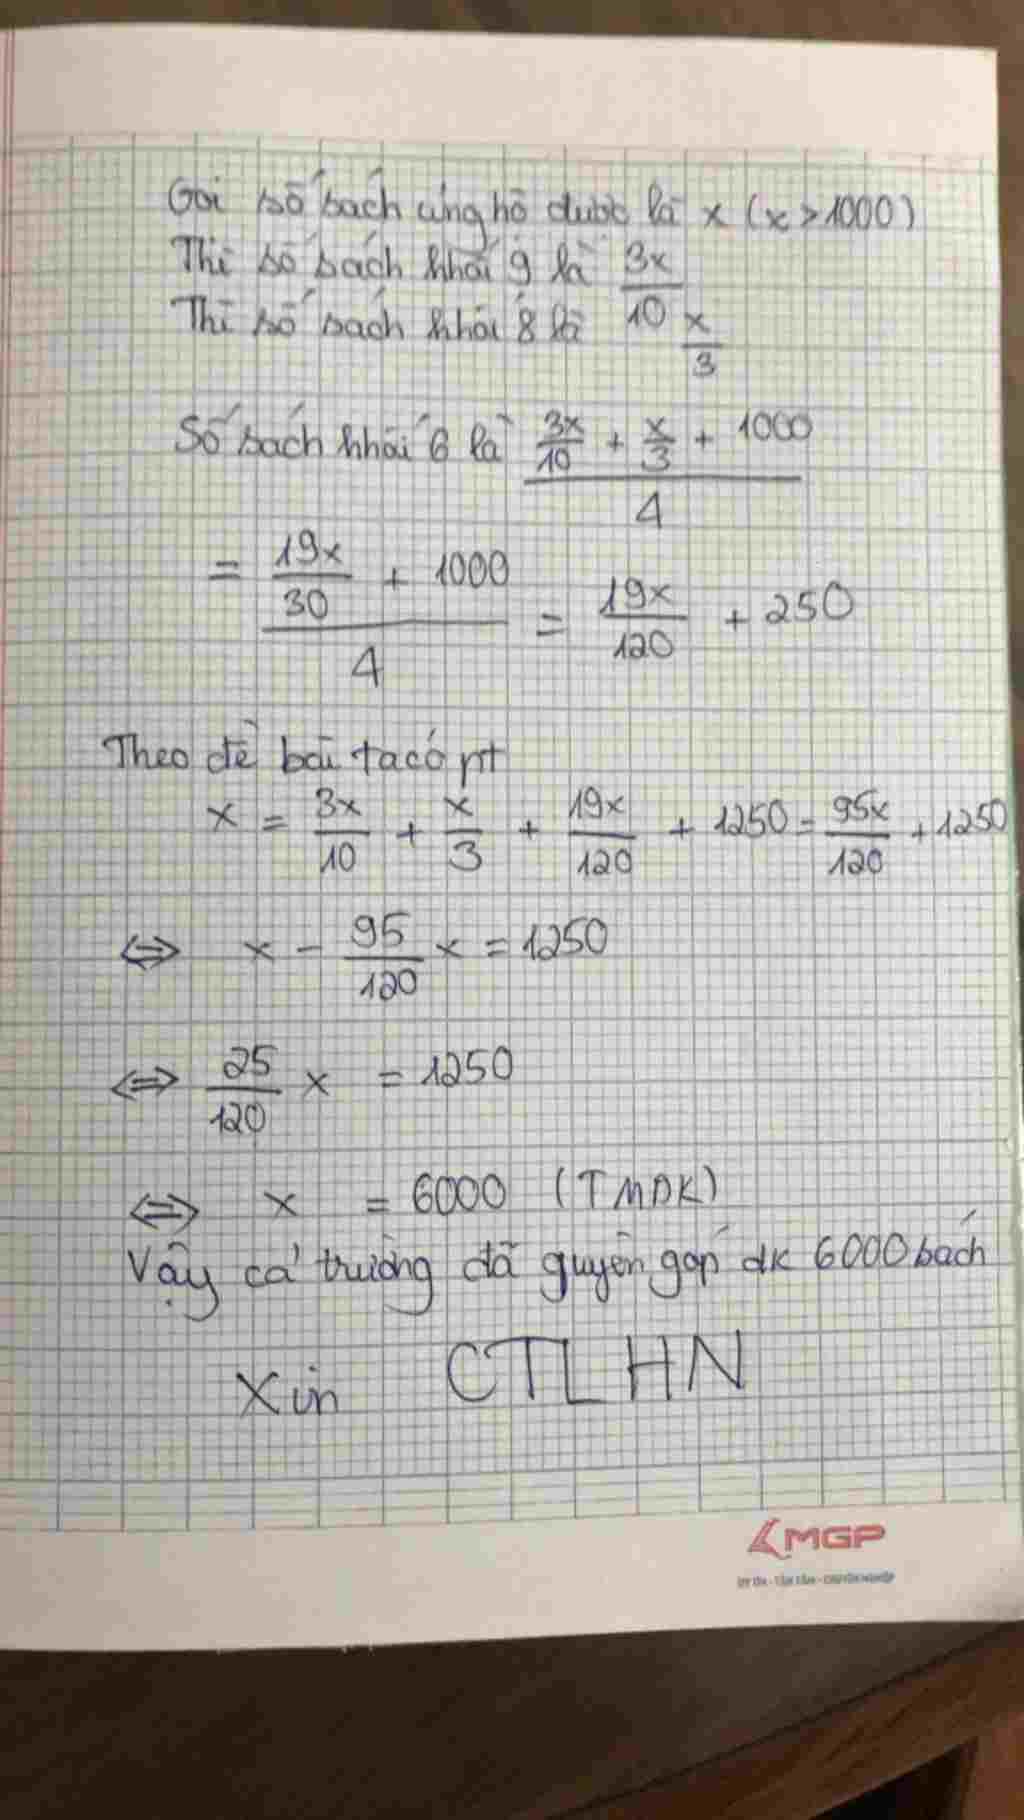 Gọi số sách ủng hộ được là x (x > 1000)
Thì số sách khối 9 là 3x/10
Thì số sách khối 8 là x/3
Số sách khối 6 là (3x/10 + x/3 + 1000)/4
= (19x/30 + 1000)/4 = 19x/120 + 250
Theo đề bài ta có pt
x = 3x/10 + x/3 + 19x/120 + 1250 = 95x/120 + 1250
⇔ x - 95/120 x = 1250
⇔ 25/120 x = 1250
⇔ x = 6000 (TMDK)
Vậy cả trường đã quyên góp dk 6000 sách
Xin CTLHN
MGP
UY TÍN - TẬN TÂM - CHUYÊN NGHIỆP